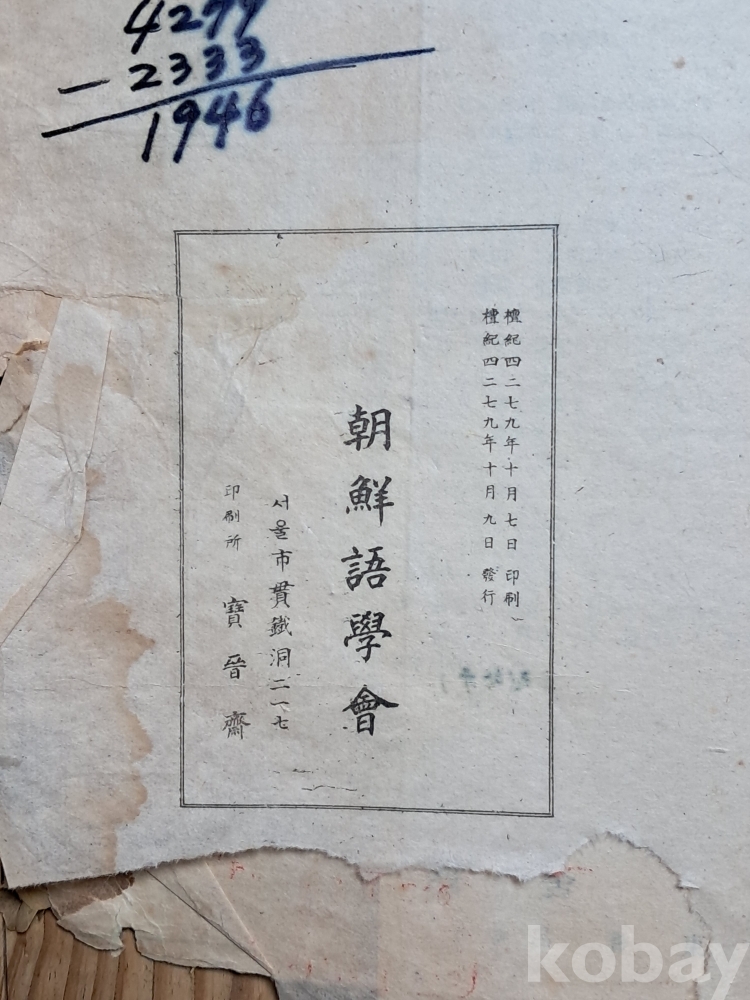 4279
- 2333
1946
檀紀四二七九年十月七日 印刷
檀紀四二七九年十月九日 發行
朝鮮語學會
서울市貫鐵洞二一七
印刷所 寶晉齋
kobay